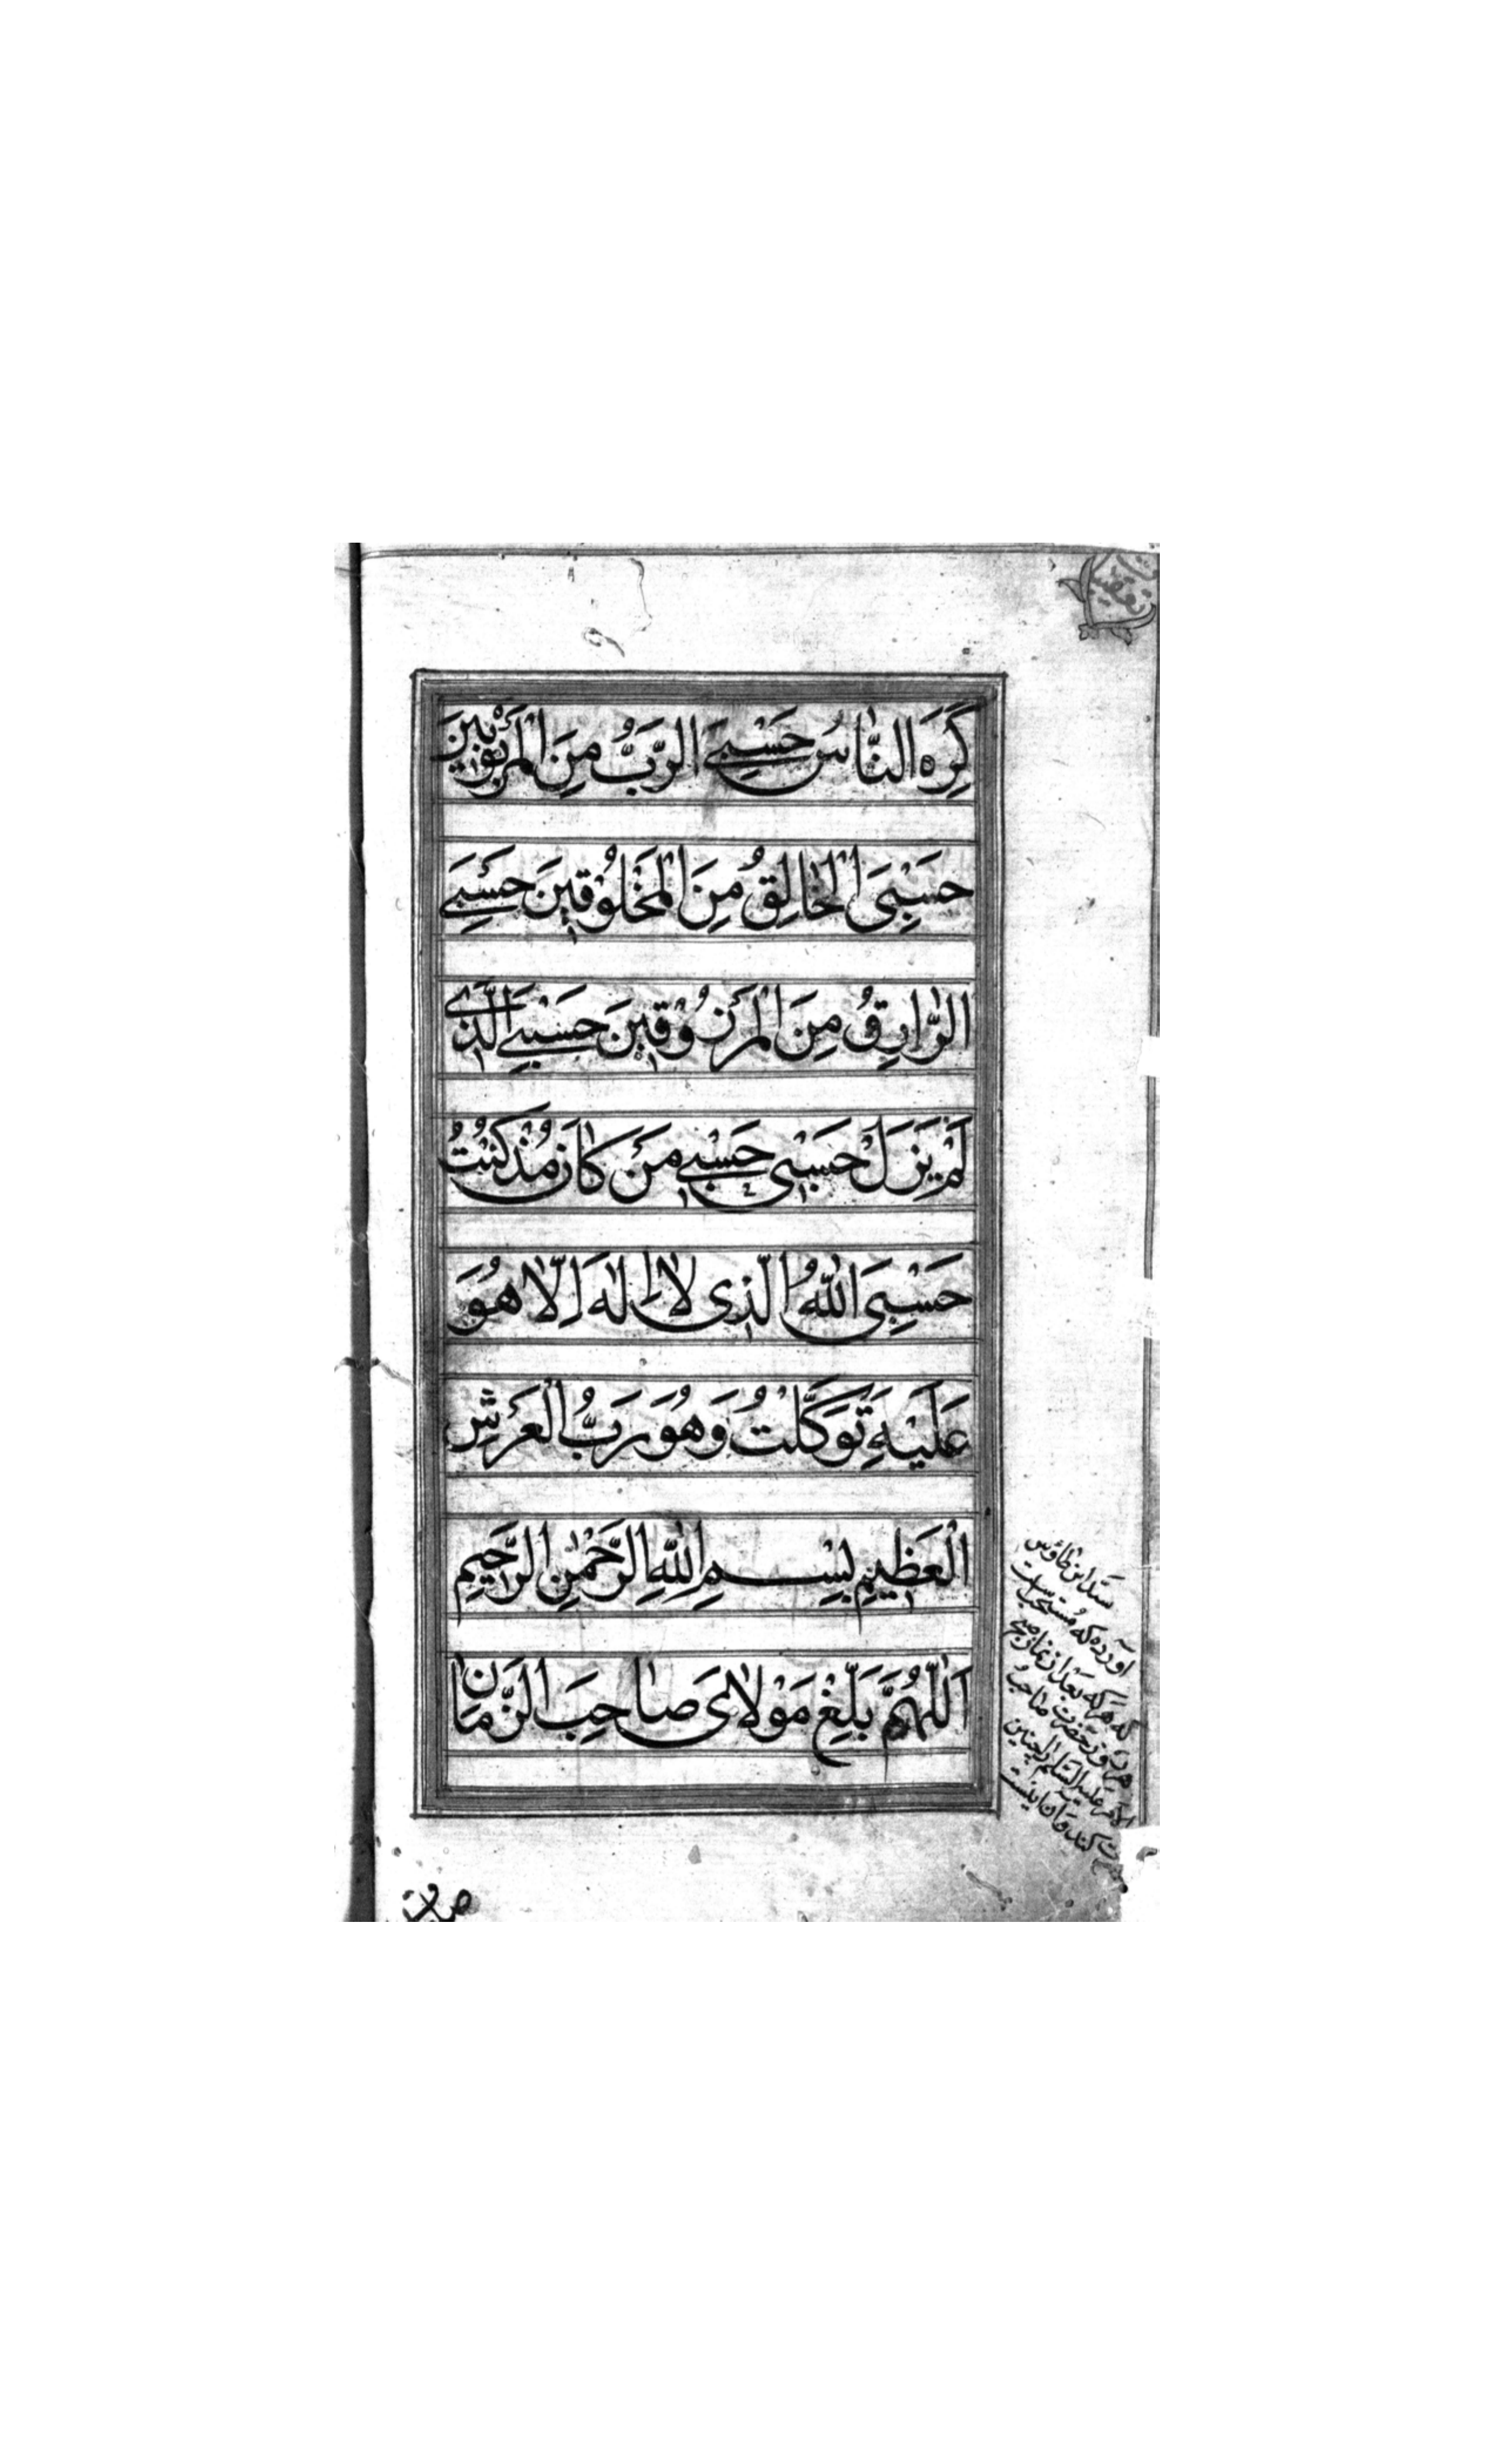 كَرِهَ النَّاسُ حَسْبِيَ الرَّبُّ مِنَ الْمَرْبُوبِينَ
حَسْبِيَ الْخَالِقُ مِنَ الْمَخْلُوقِينَ حَسْبِيَ
الرَّازِقُ مِنَ الْمَرْزُوقِينَ حَسْبِيَ الَّذِي
لَمْ يَزَلْ حَسْبِي حَسْبِي مَنْ كَانَ مُذْ كُنْتُ
حَسْبِيَ اللّٰهُ الَّذِي لَا إِلٰهَ إِلَّا هُوَ
عَلَيْهِ تَوَكَّلْتُ وَهُوَ رَبُّ الْعَرْشِ
الْعَظِيمِ بِسْمِ اللّٰهِ الرَّحْمٰنِ الرَّحِيمِ
اَللّٰهُمَّ بَلِّغْ مَوْلَايَ صَاحِبَ الزَّمَانِ
سید ابن طاوس
آورده که مستحبست
که هرکه بعد از نماز صبح
هر روز حضرت صاحب
الامر علیه السلام را چنین
کند و آن اینست